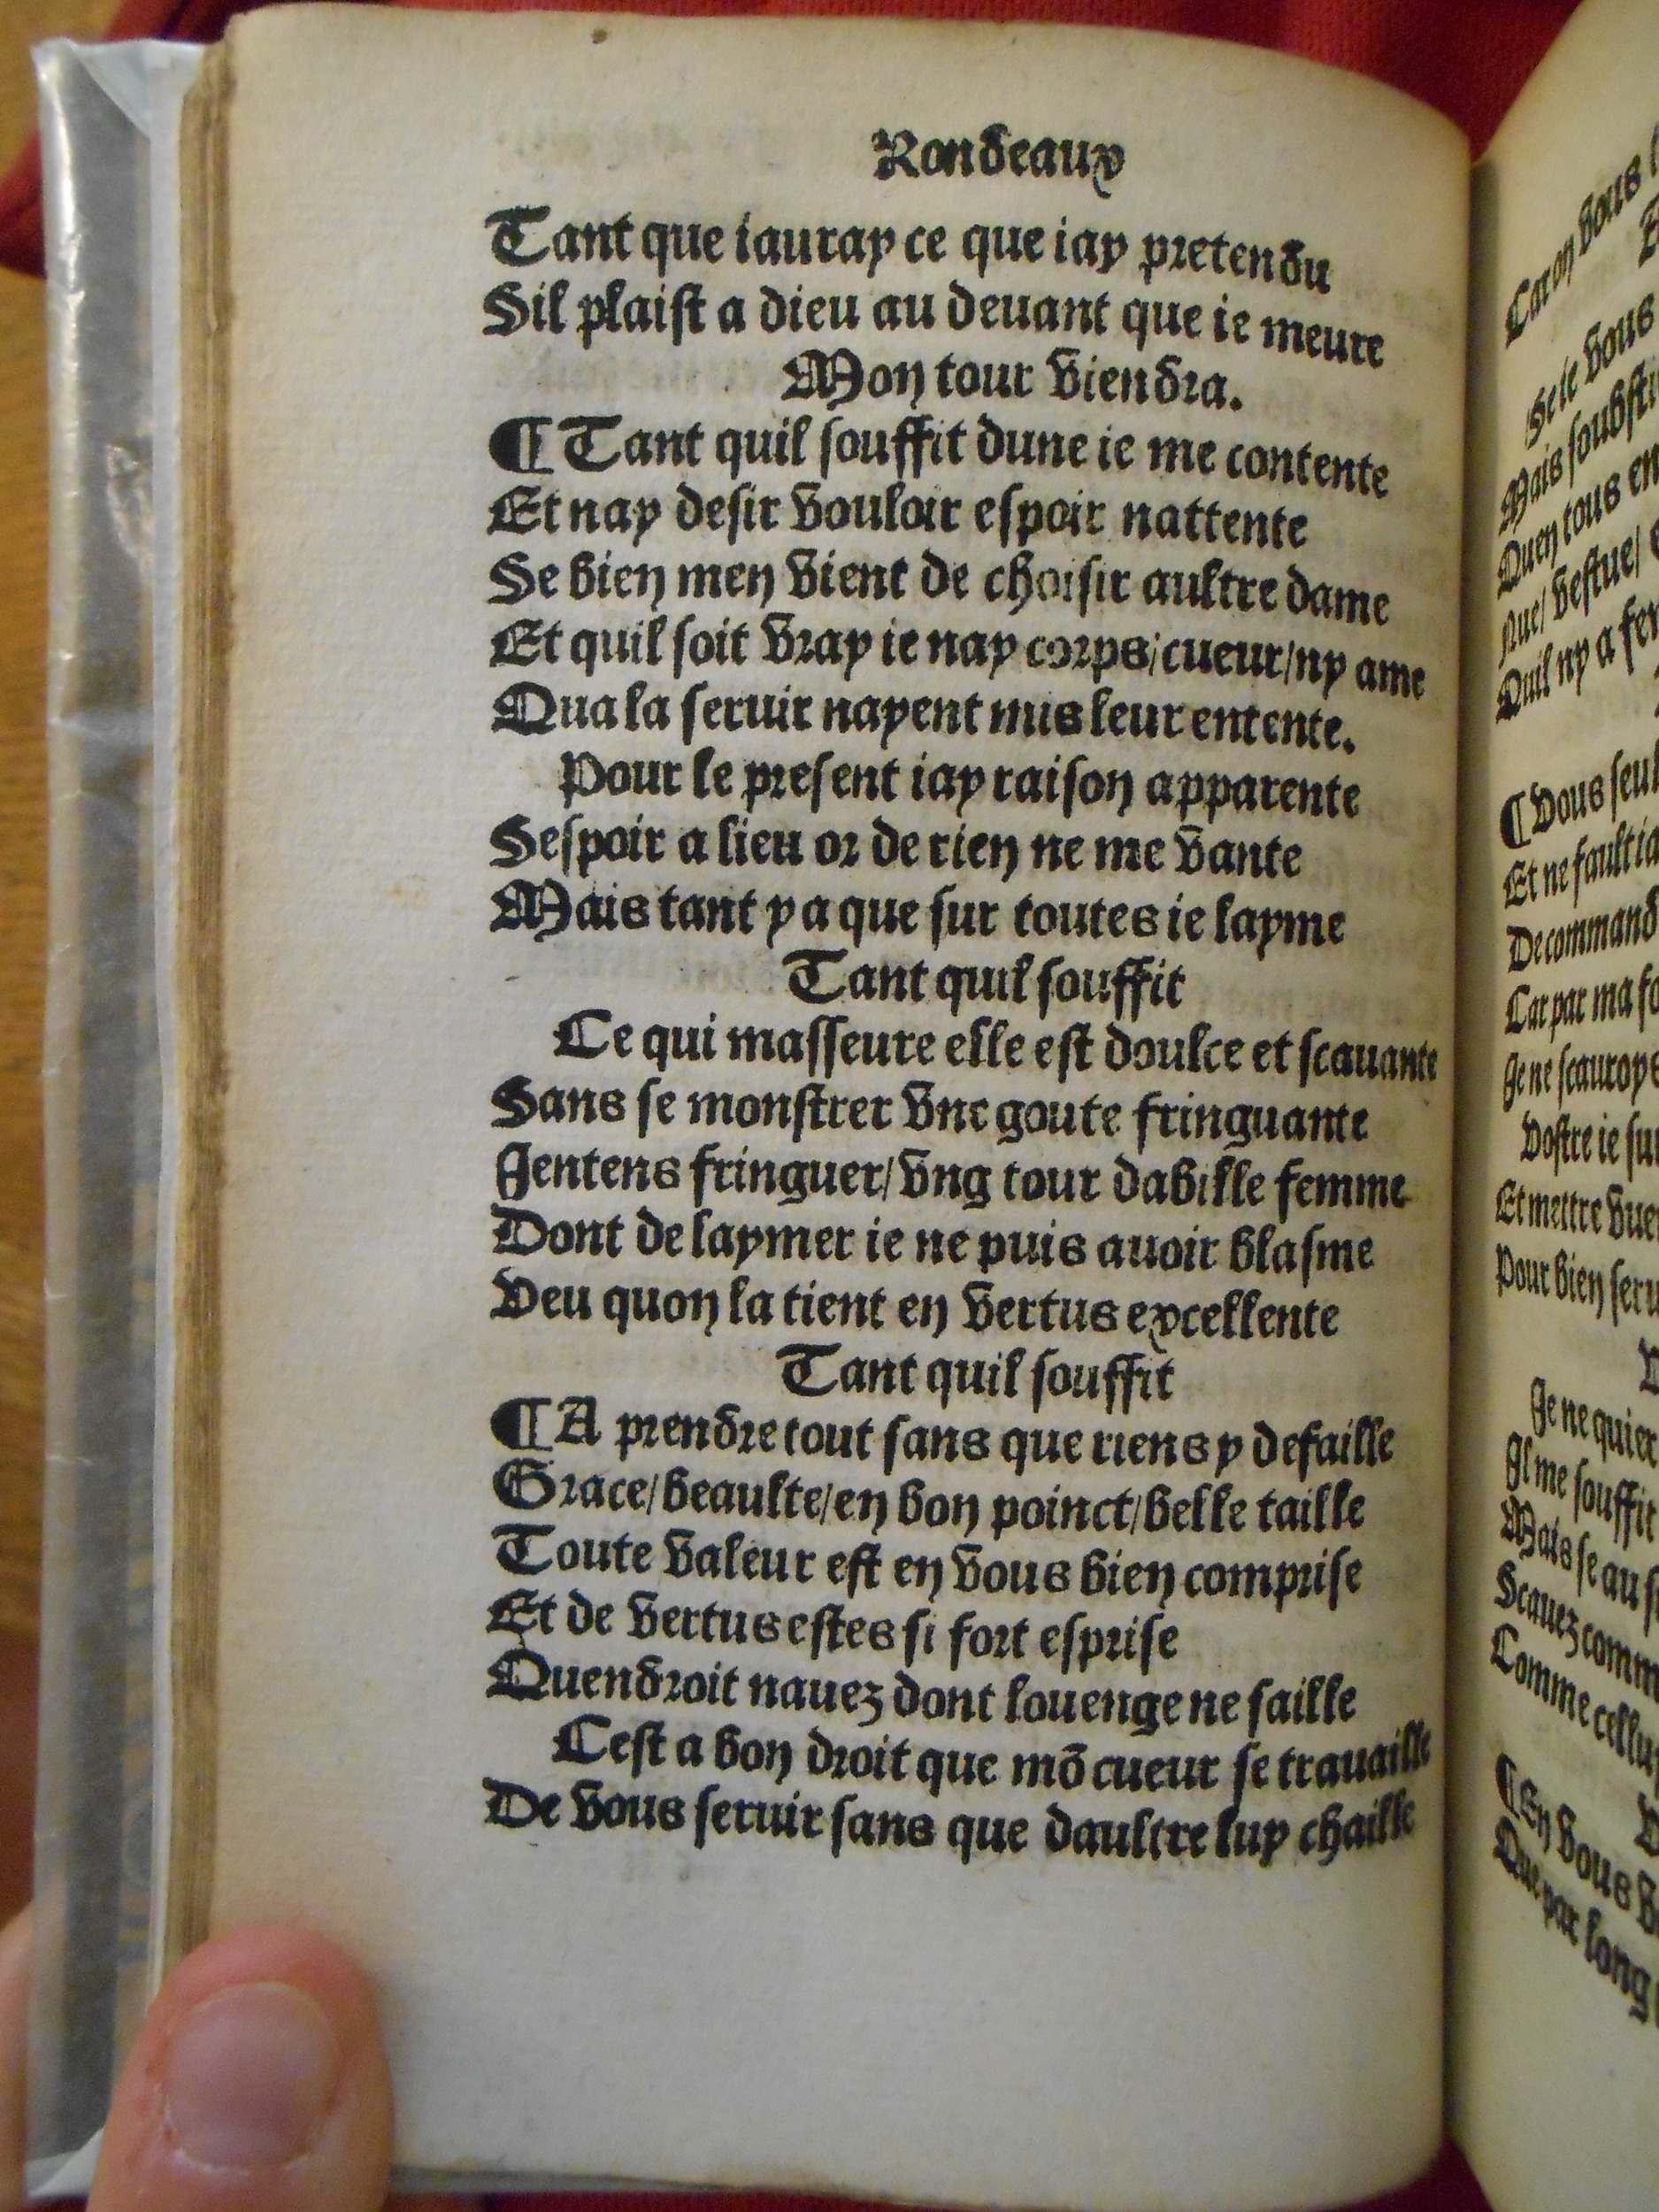 Rondeaux
Tant que iauray ce que iay pretendu
Sil plaist a dieu au deuant que ie meure
Mon tour viendra.
¶ Tant quil souffit dune ie me contente
Et nay desir vouloir espoir nattente
Se bien men vient de choisir aultre dame
Et quil soit vray ie nay corps/cueur/ny ame
Qua la seruir nayent mis leur entente.
Pour le present iay raison apparente
Sespoir a lieu or de rien ne me vante
Mais tant y a que sur toutes ie layme
Tant quil souffit
Ce qui masseure elle est doulce et scauante
Sans se monstrer vne goute fringuante
Jentens fringuer/vng tour dabille femme
Dont de laymer ie ne puis auoir blasme
Veu quon la tient en vertus excellente
Tant quil souffit
¶ A prendre tout sans que riens y defaille
Grace/beaulte/en bon poinct/belle taille
Toute valeur est en vous bien comprise
Et de vertus estes si fort esprise
Quendroit nauez dont louenge ne saille
Cest a bon droit que mõ cueur se trauaille
De vous seruir sans que daultre luy chaille
Car on vous
Se ie vous
Mais
Quen tous en
Nue/ vestue/
Quil ny a
¶ Vous seul
Et ne fault
De command
Car par ma
Je ne scauroye
Vostre ie
Et mettre
Pour bien seru
Je ne quier
Il me souffit
Mais se au
Scauez comm
Comme celluy
¶ En vous
Que par long